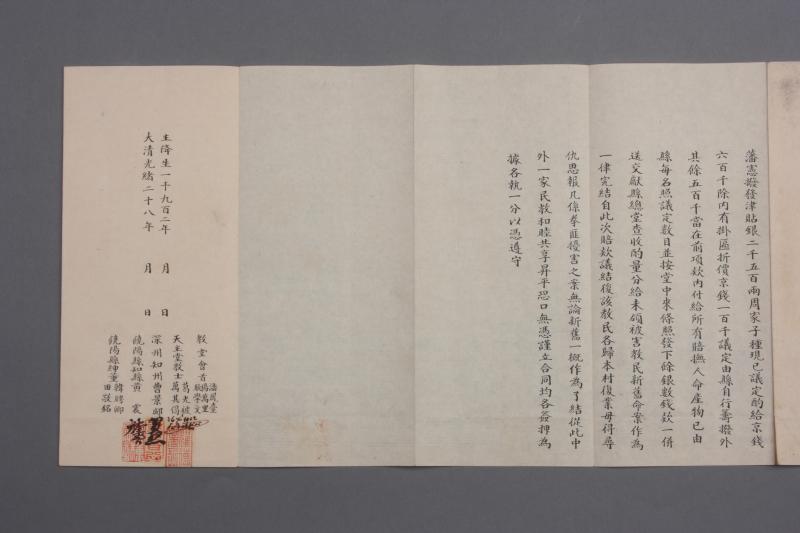 藩憲撥發津貼銀二千五百兩周家子種現已議定酌給京錢
六百千除內有掛匾折價京錢一百千議定由縣自行籌撥外
其餘五百千當在前項欵內付給所有賠撫人命產物已由
縣每名照議定數目並按堂中來條照發下餘銀數錢欵一併
送交獻縣總堂查收酌量分給未領被害教民新舊命案作為
一律完結自此次賠欵議結後該教民各歸本村復業毋得尋
仇思報凡係拳匪擾害之案無論新舊一概作為了結從此中
外一家民教和睦共享昇平恐口無憑謹立合同均各簽押為
據各執一分以憑遵守
主降生一千九百二年 月 日
大清光緒二十八年 月 日
教堂會首 潘鳳臺 馮萬里 殷學文
天主堂教士 葛光被 萬其偈
深州知州曹景郕
饒陽縣知縣黃 震
饒陽縣紳董 韓聘卿 田敬銘